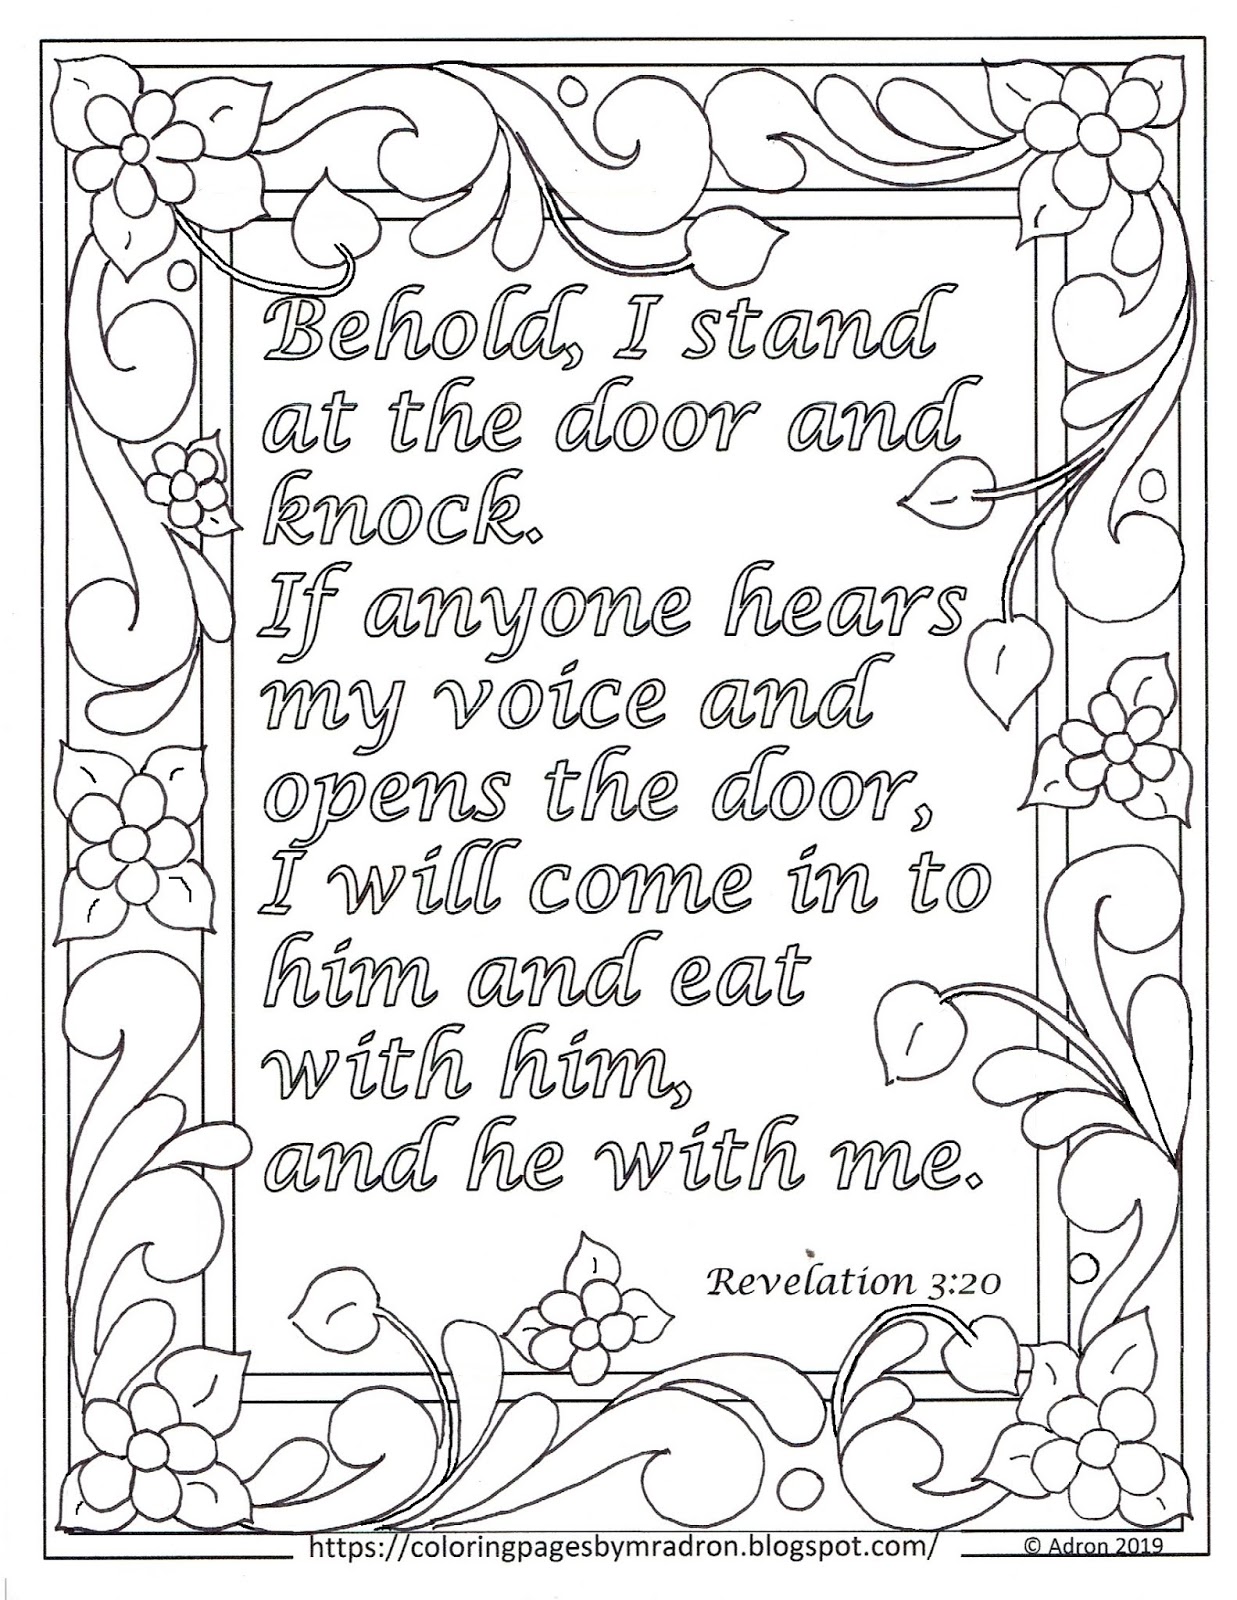 Behold, I stand
at the door and
knock.
If anyone hears
my voice and
opens the door,
I will come in to
him and eat
with him,
and he with me.
Revelation 3:20
https://coloringpagesbymradron.blogspot.com/
© Adron 2019